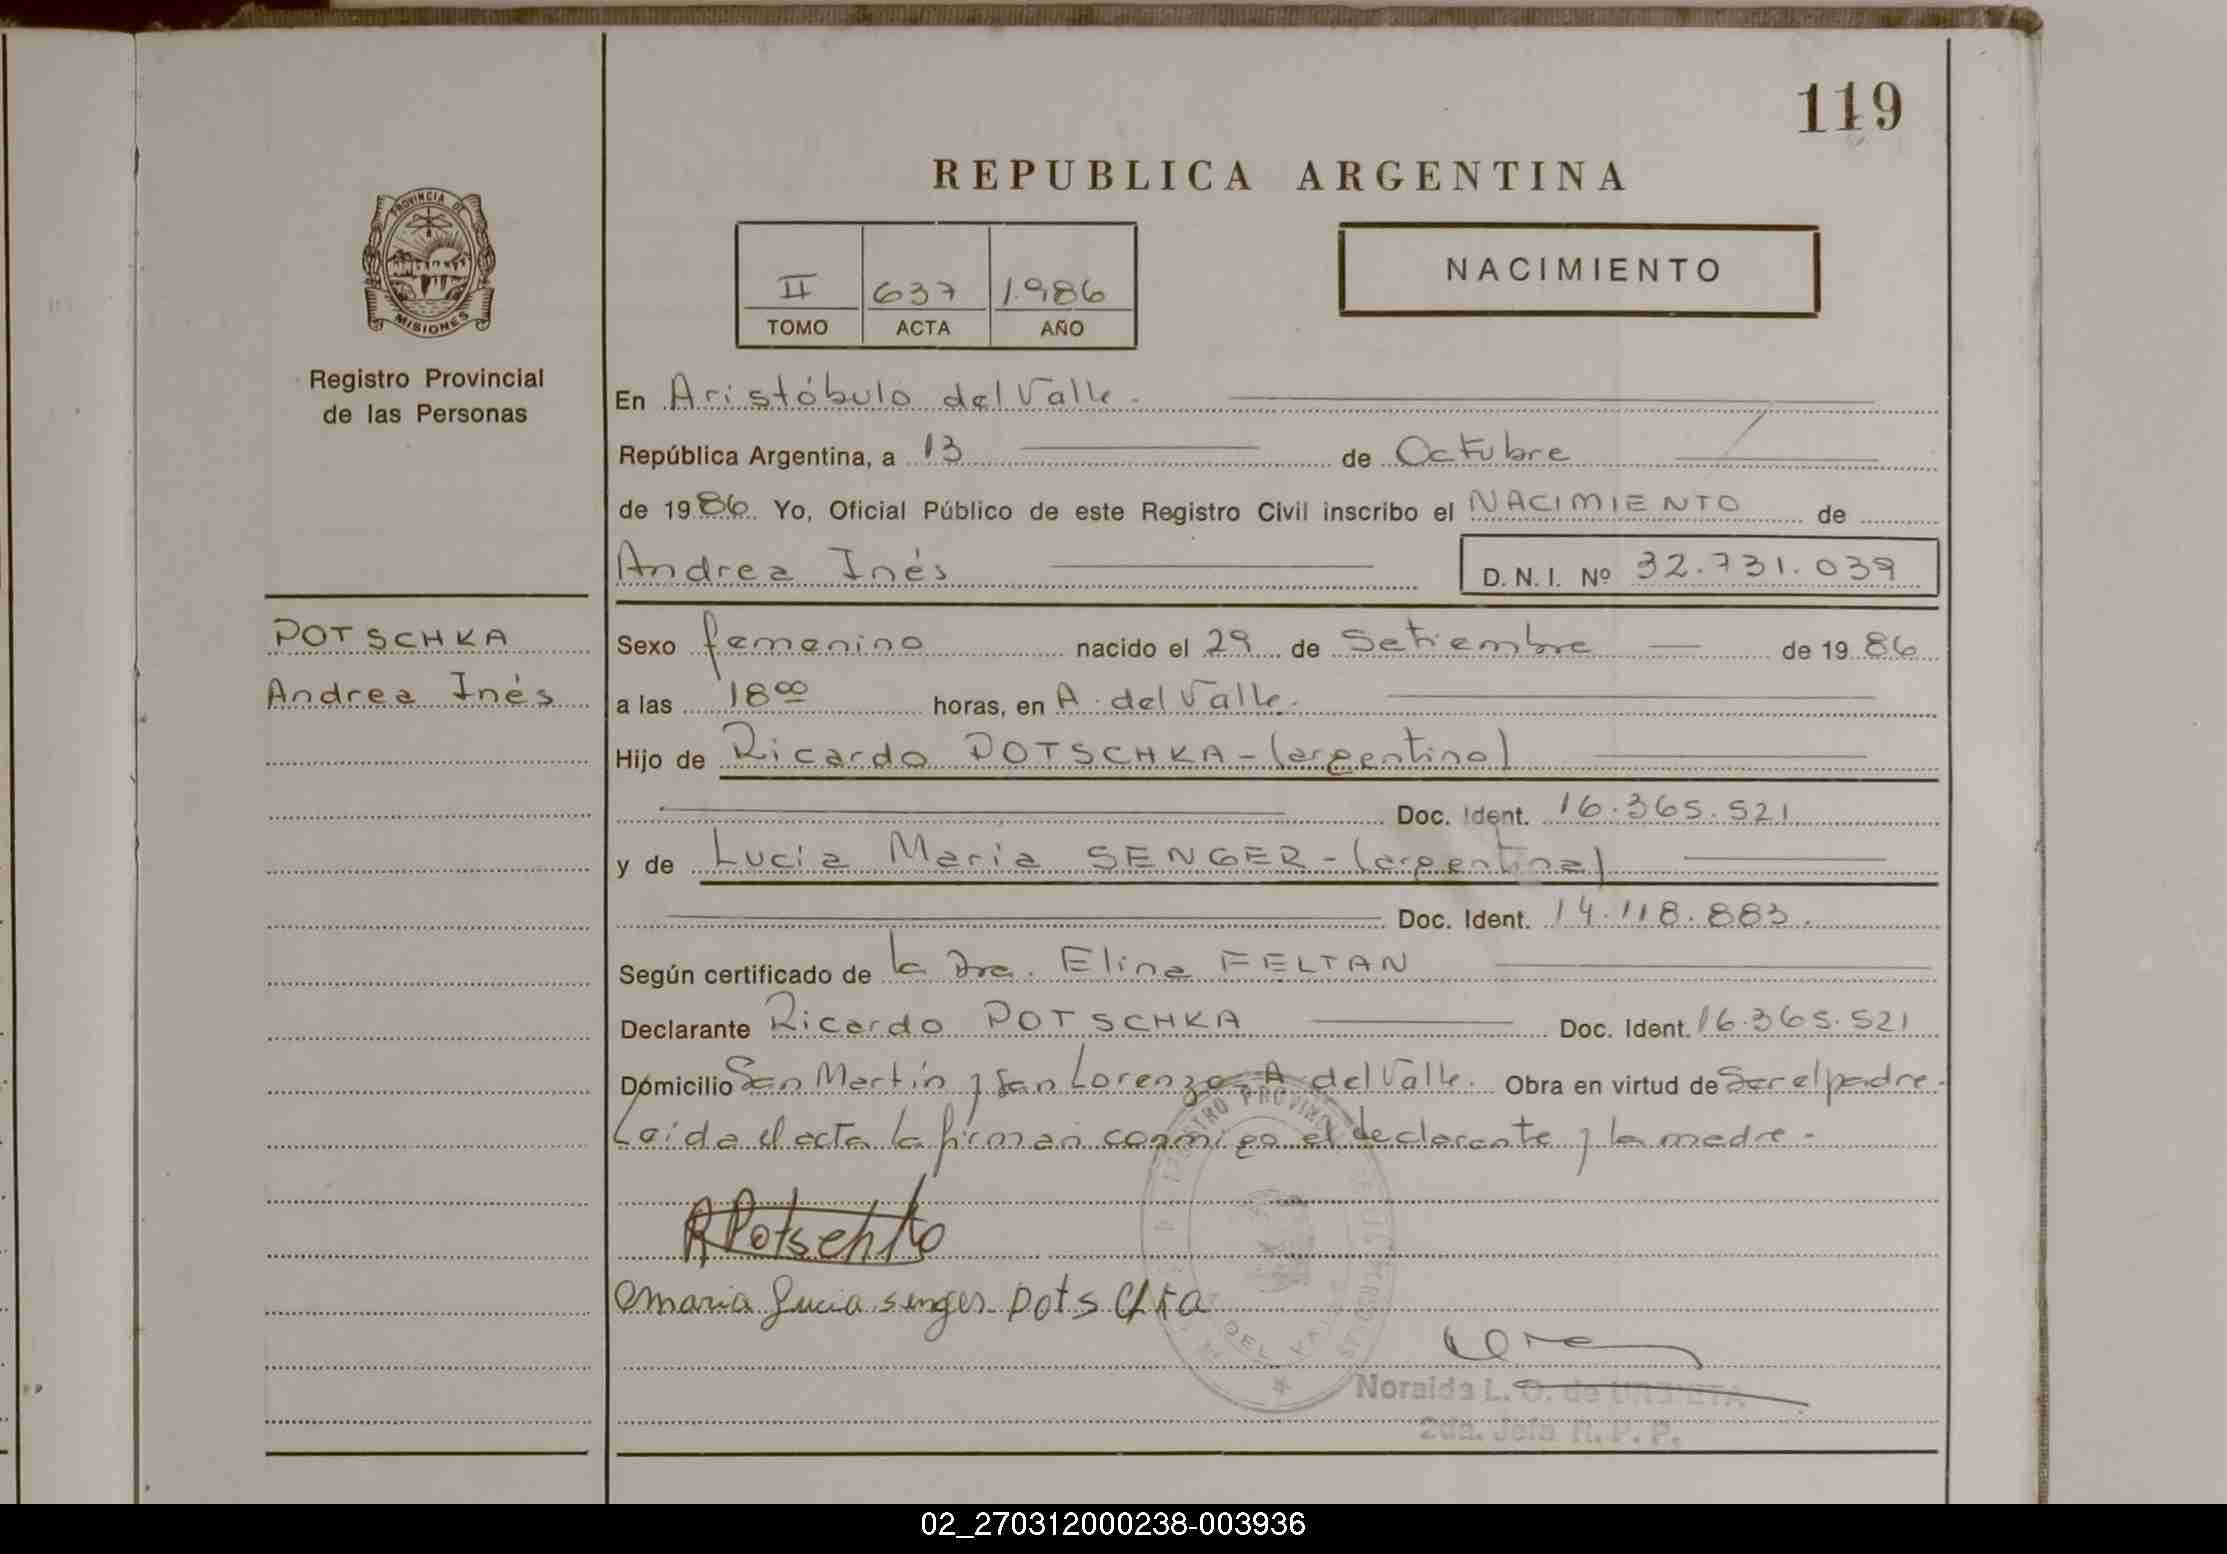 119
REPUBLICA ARGENTINA
PROVINCIA DE
MISIONES
Registro Provincial
de las Personas
II 637 1.986
TOMO ACTA AÑO
NACIMIENTO
En Aristóbulo del Valle.
República Argentina, a 13 de Octubre
de 1986. Yo, Oficial Público de este Registro Civil inscribo el NACIMIENTO de
Andrea Inés D. N. I. Nº 32.731.039
POTSCHKA
Andrea Inés
Sexo femenino nacido el 29 de Setiembre de 1986
a las 18 00 horas, en A. del Valle.
Hijo de Ricardo POTSCHKA - (argentino)
Doc. Ident. 16.365.521
y de Lucia Maria SENGER - (argentina)
Doc. Ident. 14.118.883.
Según certificado de la Dra. Elina FELTAN
Declarante Ricardo POTSCHKA Doc. Ident. 16.365.521
Domicilio San Martín y San Lorenzo - A. del Valle. Obra en virtud de Ser el padre.
Leida el acta la firman conmigo el declarante y la madre.-
R Potschka
Maria Lucia senger Potschka
DEL VALLE
Noraida L. O. de URBIETA
2da. Jefa R. P. P.
02_270312000238-003936